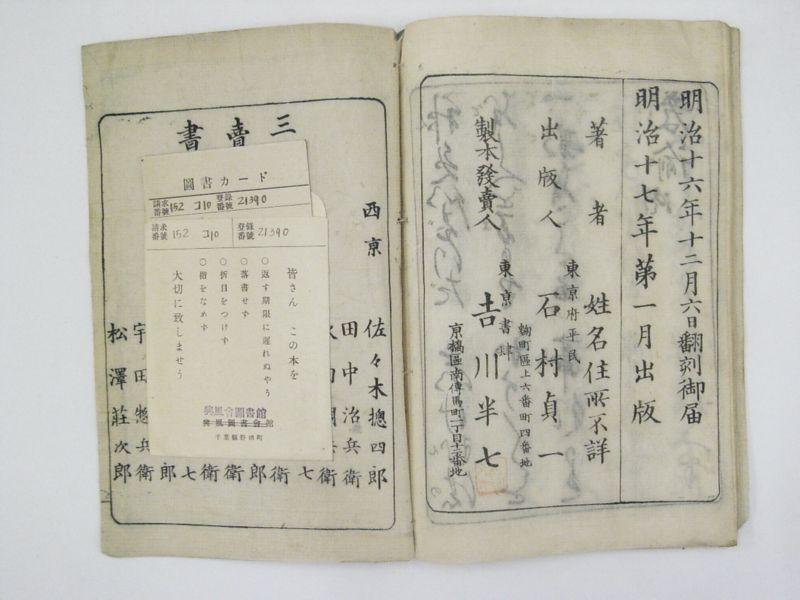 明治十六年十二月六日翻刻御届
明治十七年第一月出版
著者 姓名住所不詳
東京府平民
出版人 石村貞一
麹町區上六番町四番地
製本發賣人 東京書肆 吉川半七
京橋區南傳馬町一丁目十二番地
三賣書
西京
佐々木摠四郎
田中治兵衛
衛
七
郎
衛
衛
郎
七
宇田惣兵衛
松澤莊次郎
圖書カード
請求番號 152 コ10 登錄番號 21390
請求番號 152 コ10 登錄番號 21390
皆さん この本を
○返す期限に遲れぬやう
○落書せず
○折目をつけず
○指をなめず
大切に致しませう
興風會圖書館
興風圖書會館
千葉縣野田町